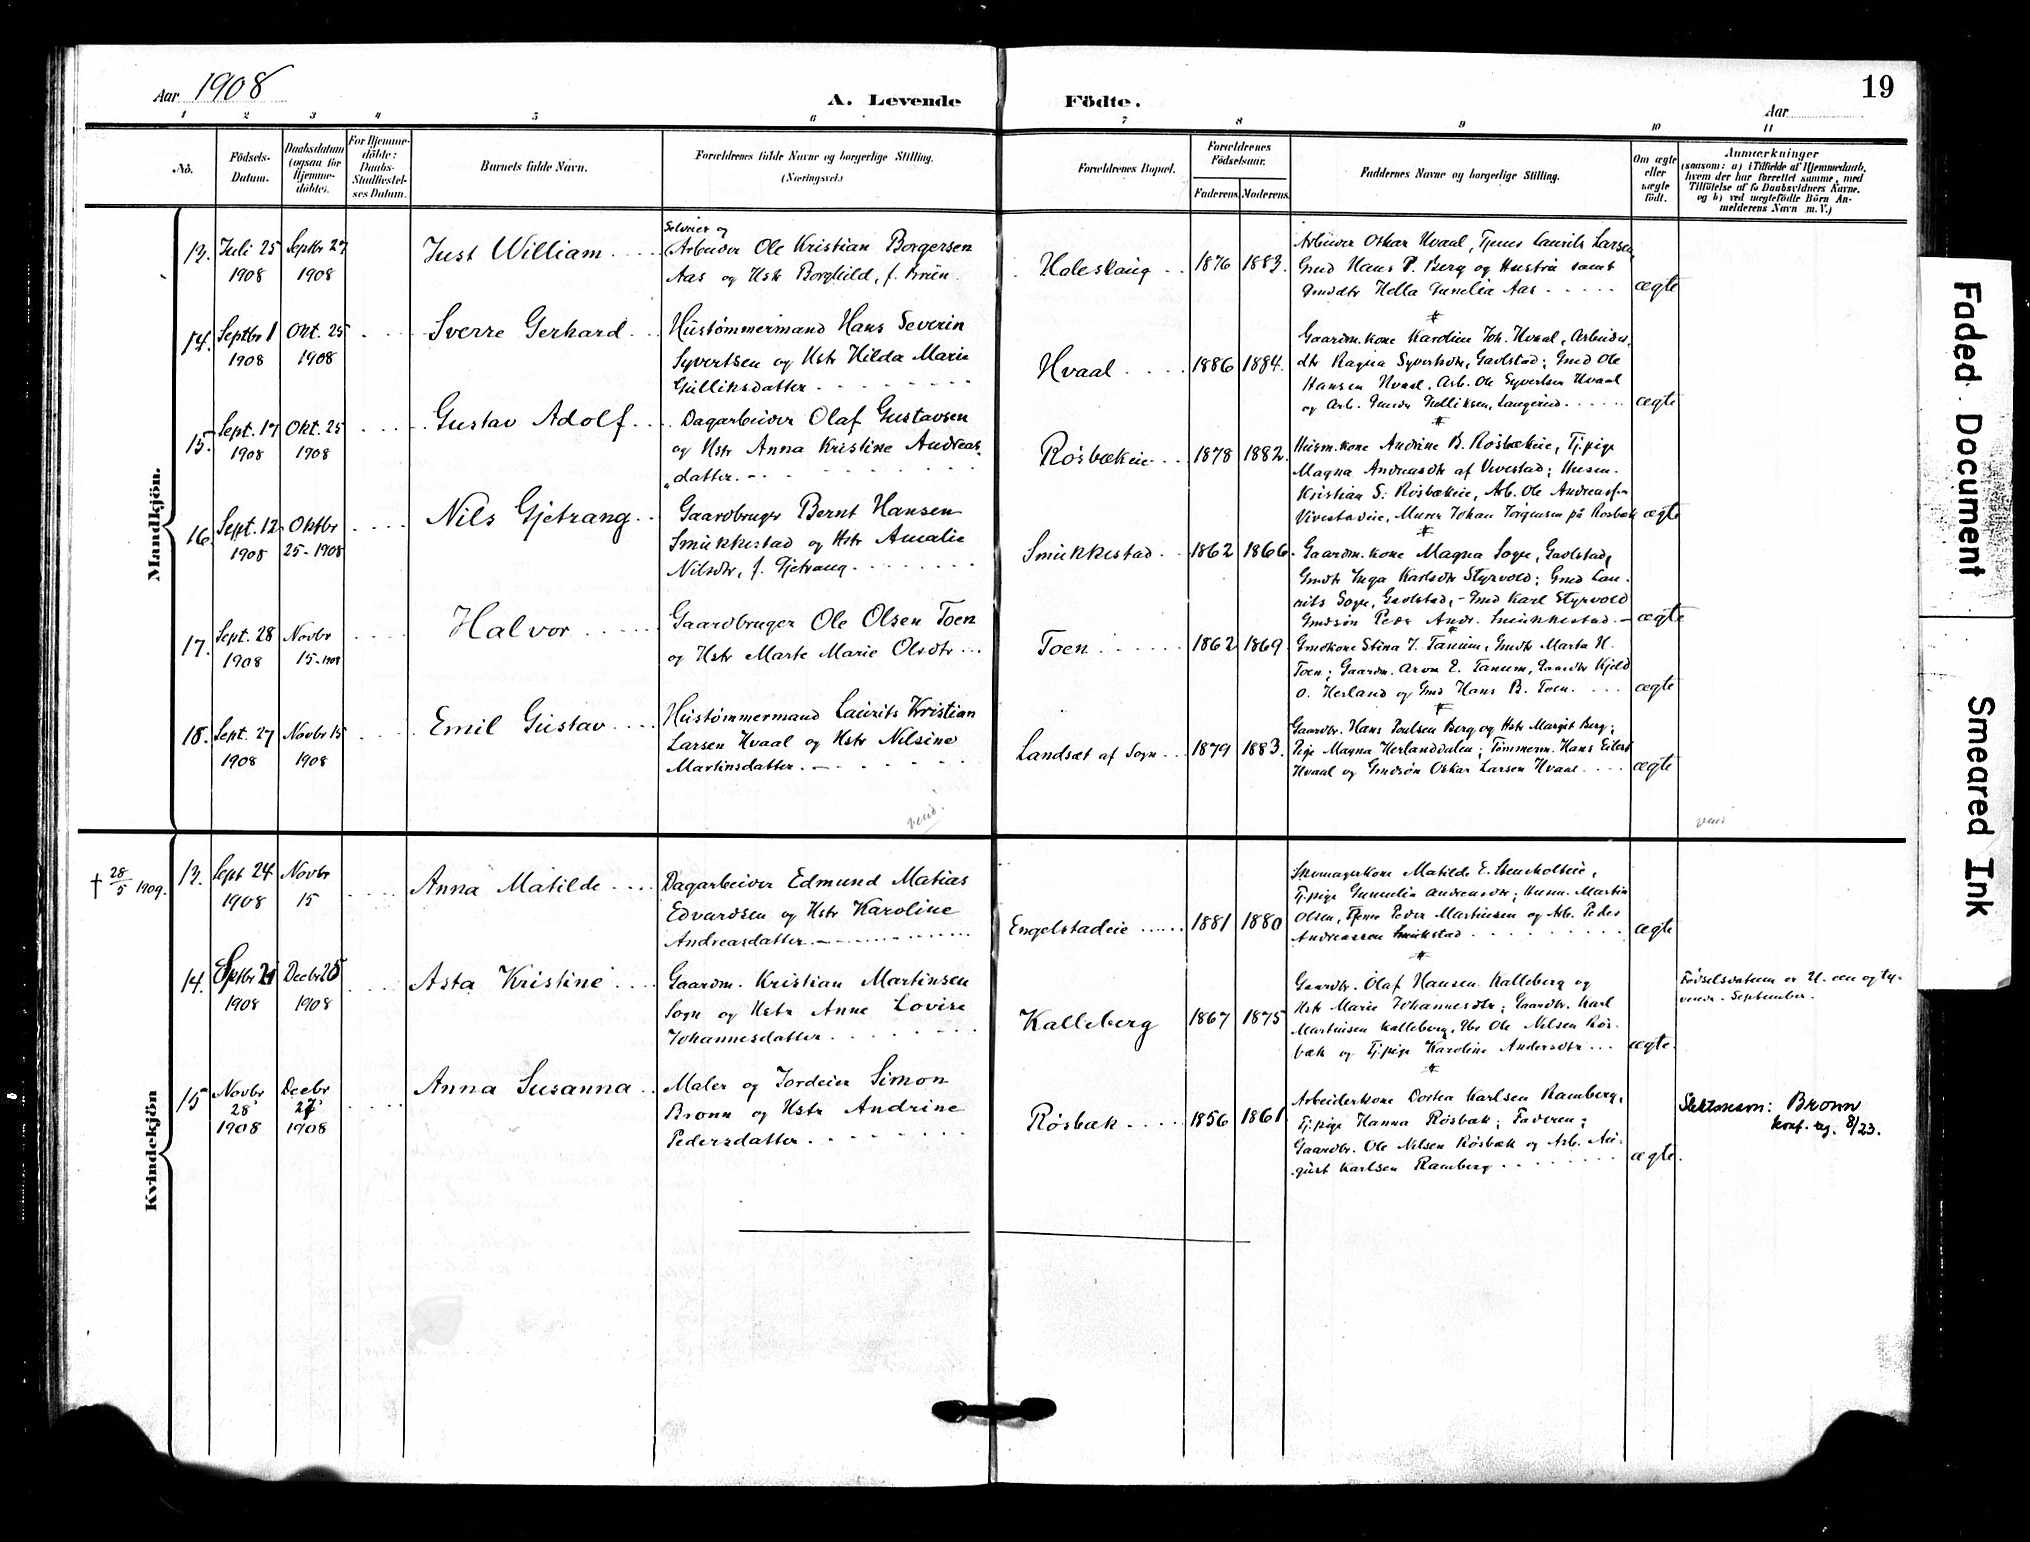 Aar 1908
A. Levende Födte.
Aar
19
1 2 3 4 5 6 7 8 9 10 11
No.
Födsels-
Datum.
Daabsdatum
(ogsaa for
Hjemme-
döbte).
For Hjemme-
döbte:
Daabs-
Stadfæstel-
ses Datum.
Barnets fulde Navn.
Forældrenes fulde Navne og borgerlige Stilling.
(Næringsvei.)
Forældrenes Bopæl.
Forældrenes
Födselsaar.
Faderens. Moderens.
Faddernes Navne og borgerlige Stilling.
Om ægte
eller
uægte
födt.
Anmærkninger
(saasom: a) i Tilfælde af Hjemmedaab,
hvem der har forrettet samme, med
Tilföielse af to Daabsvidners Navne,
og b) ved uægtefödte Börn An-
melderens Navn m. V.)
Mandkjön.
13. Juli 25 1908
Septbr 27 1908
Just William
Selveier og
Arbeider Ole Kristian Borgersen
Aas og Hstr Borghild, f. Bruun
Holeskaug
1876 1883.
Arbeider Oskar Hvaal, Tjener Laurits Larsen,
Gmd Hans P. Berg og Hustru samt
Gmdtr Hella Gunelia Aas
ægte
14. Septbr 1 1908
Okt. 25 1908
Sverre Gerhard
Hustømmermand Hans Severin
Syvertsen og Hstr Hilda Marie
Gulliksdatter
Hvaal
1886 1884.
Gaardm.kone Karoline Joh. Hvaal, Arbeider-
dtr Ragna Syvertsdtr, Gavlstad; Gmd Ole
Hansen Hvaal, Arb. Ole Syvertsen Hvaal
og Arb. Gulliksen, Langerud
ægte
15. Sept. 17 1908
Okt. 25 1908
Gustav Adolf
Dagarbeider Olaf Gustavsen
og Hstr Anna Kristine Andreas-
datter.
Røsbækeie
1878 1882.
Husm.kone Andrine B. Røsbækeie, Tj.pige
Magna Andreasdtr af Vivestad; Husm.
Kristian S. Røsbækeie, Arb. Ole Andreassen
Vivestadeie, Murer Johan Jørgensen på Rosbæk
ægte
16. Sept. 12 1908
Oktbr 25 - 1908
Nils Gjetrang
Gaardbruger Bernt Hansen
Smukkestad og Hstr Amalie
Nilsdtr, f. Gjetrang
Smukkestad
1862 1866.
Gaardm.kone Magna Sogn, Gavlstad,
Gmdtr Inga Karlsdtr Styrvold; Gmd Lau-
rits Sogn, Gavlstad, - Gmd Karl Styrvold
Gmdsøn Peder Andr. Smukkestad
ægte
17. Sept. 28 1908
Novbr 15 - 1908
Halvor
Gaardbruger Ole Olsen Toen
og Hstr Marte Marie Olsdtr
Toen
1862 1869.
Gmdkone Stina J. Tanum, Gmdtr Marta H.
Toen; Gaardm. Aron E. Tanum, Gaardbr Kjeld
O. Herland og Gmd Hans B. Toen.
ægte
18. Sept. 27 1908
Novbr 15 1908
Emil Gustav
Hustømmermand Laurits Kristian
Larsen Hvaal og Hstr Nilsine
Martinsdatter.
Landsæt af Sogn
1879 1883.
Gaardbr. Hans Poulsen Berg og Hstr Margit Berg;
Pige Magna Herlanddalen; Tømmerm. Hans Eilert
Hvaal og Gmdsøn Oskar Larsen Hvaal
ægte
vend.
vend
Kvindekjön
† 28/5 1909.
13. Sept 24 1908
Novbr 15
Anna Matilde
Dagarbeider Edmund Matias
Edvardsen og Hstr Karoline
Andreasdatter
Engelstadeie
1881 1880
Skomagerkone Matilde E. Stensholteie,
Tj.pige Gunnelia Andreasdtr; Husm. Martin
Olsen, Tjener Peder Martinsen og Arb. Peder
Andreassen Smukstad
ægte
14. Septbr 21 1908
Decbr 25 1908
Asta Kristine
Gaardm. Kristian Martinsen
Sogn og Hstr Anne Lovise
Johannesdatter
Kalleberg
1867 1875
Gaardbr. Olaf Hansen Kalleberg og
Hstr Marie Johannesdtr; Gaardbr. Karl
Martinsen Kalleberg, Gbr Ole Nilsen Røs-
bæk og Tj.pige Karoline Andersdtr
ægte.
Fødselsdatum er 21. een og ty-
vende September.
15 Novbr 28 1908
Decbr 27 1908
Anna Susanna
Maler og Jordeier Simon
Bronn og Hstr Andrine
Pedersdatter
Røsbæk
1856 1861
Arbeiderkone Dortea Karlsen Ramberg,
Tj.pige Hanna Røsbæk; Faderen;
Gaardbr. Ole Nilsen Røsbæk og Arb. Au-
gust Karlsen Ramberg
ægte.
Slektsnavn: Bronn
konf. reg. 8/23.
Faded Document
Smeared Ink